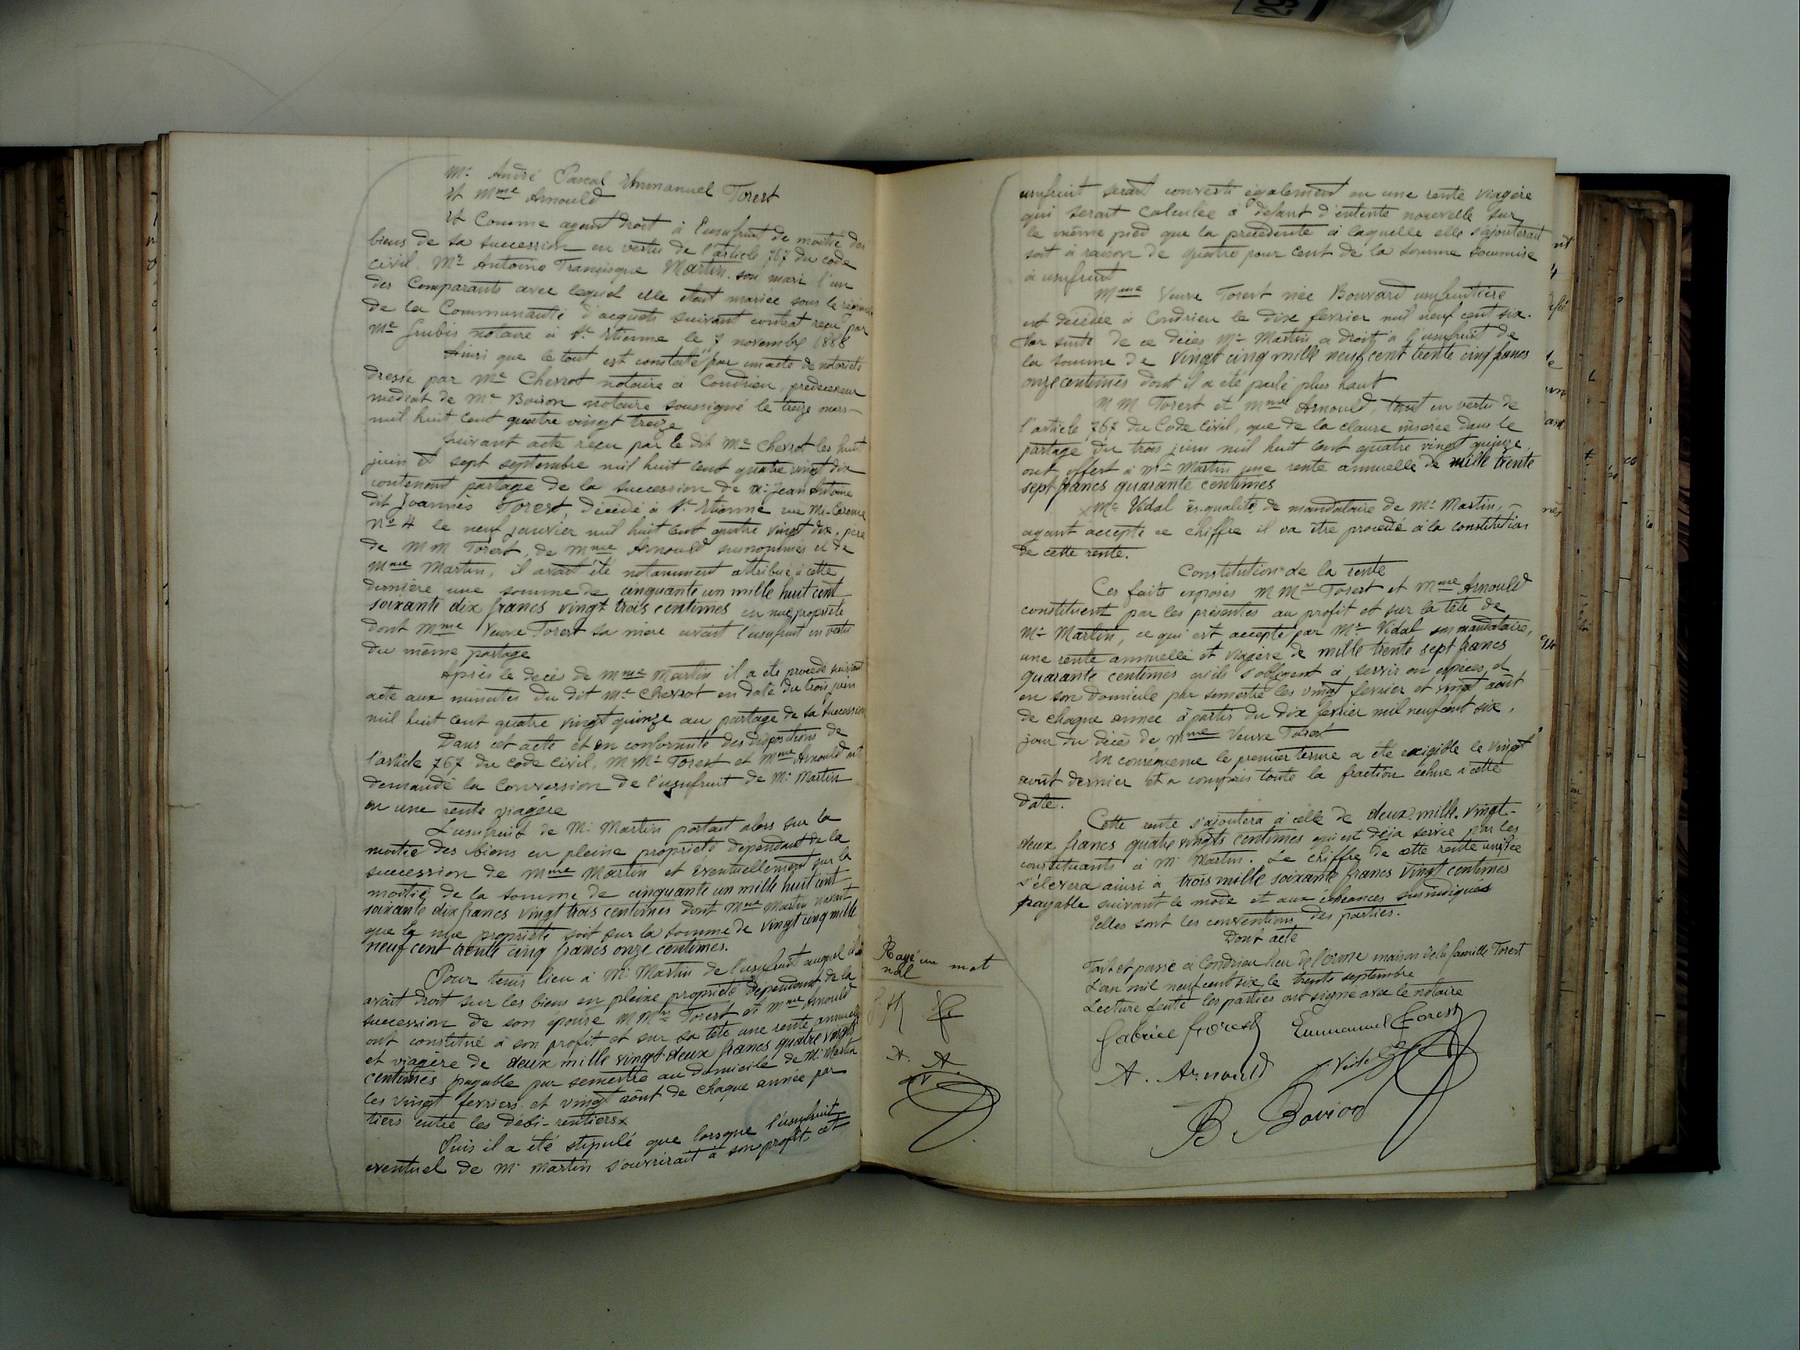 Mr André Pascal Emmanuel Forest
Et Mme Arnould
Et Comme ayant droit à l'usufruit de moitié des
biens de sa succession en vertu de l'article 767 du code
civil. Mr Antoine Françisque Martin. son mari l'un
des Comparants avec lequel elle était mariée sous le régime
de la Communauté d'acquets suivant contrat reçu par
Me Grubis notaire à St Etienne le 7 novembre 1888
Ainsi que le tout est constaté par un acte de notoriété
dressé par Me Chevrot notaire à Condrieu, prédécesseur
médiat de Me Boiron notaire soussigné le treize mars
mil huit cent quatre vingt treize
Suivant acte reçu par le dit Me Chevrot les huit
juin et sept septembre mil huit cent quatre vingt dix
contenant partage de la succession de Mr Jean Antoine
dit Joannès Forest, décédé à St Etienne rue Mi-Carême
No 4 le neuf janvier mil huit cent quatre vingt dix, père
de MM Forest, de Mme Arnould susnommés et de
Mme Martin, il avait été notamment attribué à cette
dernière une somme de cinquante un mille huit cent
soixante dix francs vingt trois centimes en nue propriété
dont Mme Veuve Forest sa mère avait l'usufruit en vertu
du même partage
Après le décès de Mme Martin il a été procédé suivant
acte aux minutes du dit Me Chevrot en date du trois juin
mil huit cent quatre vingt quinze au partage de sa succession
Dans cet acte et en conformité des dispositions de
l'article 767 du Code Civil, M Mrs Forest et Mme Arnould ont
demandé la Conversion de l'usufruit de Mr Martin
en une rente viagère
L'usufruit de Mr Martin portait alors sur la
moitié des biens en pleine propriété dépendant de la
succession de Mme Martin et éventuellement sur la
moitié de la somme de cinquante un mille huit cent
soixante dix francs vingt trois centimes dont Mme Martin n'avait
que la nue propriété soit sur la somme de vingt cinq mille
neuf cent trente cinq francs onze centimes.
Pour tenir lieu à Mr Martin de l'usufruit auquel il
avait droit sur les biens en pleine propriété dépendant de la
succession de son épouse M Mrs Forest et Mme Arnould
ont constitué à son profit et sur sa tête une rente annuelle
et viagère de deux mille vingt deux francs quatre vingts
centimes payable par semestre au domicile de Mr Martin
les vingt fevriers et vingt août de chaque année par
tiers entre les débi-rentiers
Puis il a été stipulé que lorsque l'usufruit
eventuel de Mr Martin s'ouvrirait à son profit cet
Rayé un mot
nul
A. A.
usufruit serait converti également en une rente viagère
qui serait calculée à défaut d'entente nouvelle sur
le même pied que la précédente à laquelle elle s'ajouterait
soit à raison de quatre pour cent de la somme soumise
à usufruit
Mme Veuve Forest née Bouvard usufruitière
est décédée à Condrieu le dix fevrier mil neuf cent six.
Par suite de ce décès Mr Martin a droit à l'usufruit de
la somme de vingt cinq mille neuf cent trente cinq francs
onze centimes dont il a été parlé plus haut
M M Forest et Mme Arnould, tant en vertu de
l'article 767 du Code Civil, que de la clause insérée dans le
partage du trois juin mil huit cent quatre vingt quinze,
ont offert à Mr Martin une rente annuelle de mille trente
sept francs quarante centimes
Mr Vidal ès-qualité de mandataire de Mr Martin,
ayant accepté ce chiffre il va être procédé à la constitution
de cette rente.
Constitution de la rente
Ces faits exposés M Mrs Forest et Mme Arnould
constituent par les présentes au profit et sur la tête de
Mr Martin, ce qui est accepté par Mr Vidal son mandataire,
une rente annuelle et viagère de mille trente sept francs
quarante centimes qu'ils s'obligent à servir en espèces, et
en son domicile par semestre les vingt fevrier et vingt août
de chaque année à partir du dix février mil neuf cent six,
jour du décès de Mme Veuve Forest
En conséquence le premier terme a été exigible le vingt
août dernier et a compris toute la fraction échue à cette
date.
Cette rente s'ajoutera à celle de deux mille vingt-
deux francs quatre vingts centimes qui est déja servie par les
constituants à Mr Martin. Le chiffre de cette rente unifiée
s'élevera ainsi à trois mille soixante francs vingt centimes
payable suivant le mode et aux échéances susindiqués
Telles sont les conventions des parties.
Dont acte
Fait et passé à Condrieu lieu de l'Orme maison de la famille Forest
L'an mil neuf cent six le trente septembre
Lecture faite les parties ont signé avec le notaire
Gabriel Forest Emmanuel Forest
A. Arnould Vidal
B Boiron